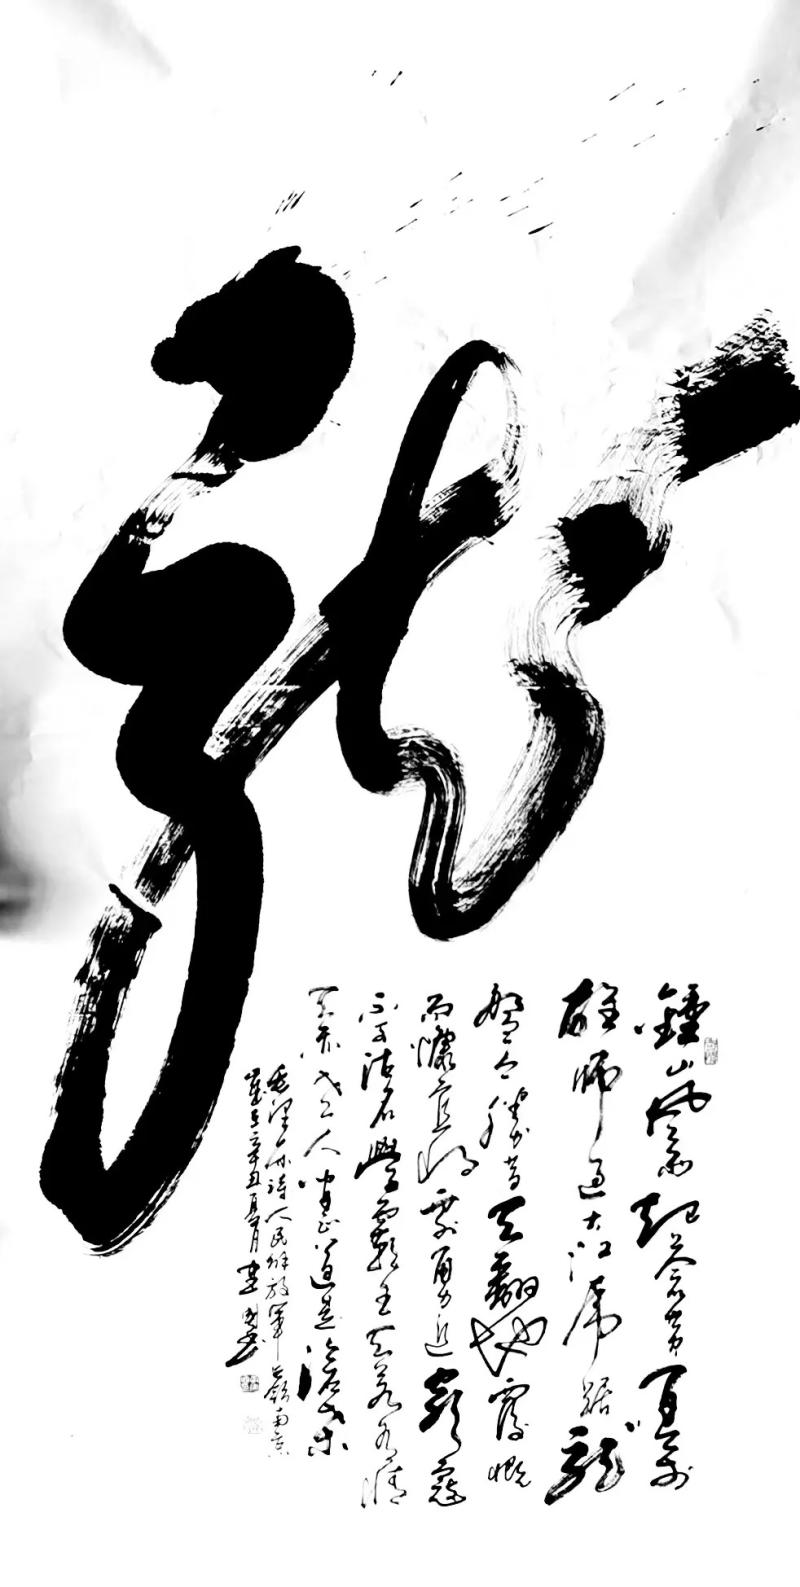 龍
鍾山風雨起蒼黃百萬
雄師過大江虎踞龍
盤今勝昔天翻地覆慨
而慷宜將剩勇追窮寇
不可沽名學霸王天若有情
天亦老人間正道是滄桑
毛澤東詩人民解放軍占領南京
歲在辛丑夏月